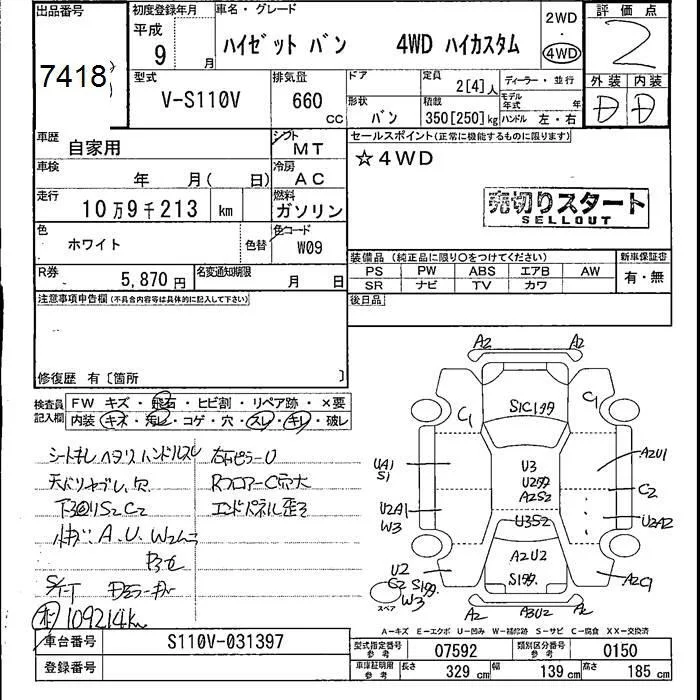 出品番号
7418
初度登録年月
平成
9 月
車名・グレード
ハイゼット バン 4WD ハイカスタム
2WD
・
4WD
評価点
2
型式
V-S110V
排気量
660 CC
ドア
形状
バン
定員
2[4]人
積載
350[250]kg
ディーラー・並行
モデル年式 年
ハンドル 左・右
外装 内装
D D
車歴
自家用
シフト
MT
セールスポイント(正常に機能するものに限ります)
☆4WD
車検
年 月( 日)
冷房
AC
走行
10万9千213 km
燃料
ガソリン
売切りスタート
SELLOUT
色
ホワイト
色替
色コード
W09
装備品 (純正品に限り○をつけてください)
新車保証書
PS PW ABS エアB AW
SR ナビ TV カワ
有・無
R券
5,870 円
名変通知期限
月 日
後日品
注意事項申告欄(不具合内容等は具体的に記入して下さい)
修復歴 有〔箇所 〕
検査員記入欄
FW キズ・飛石・ヒビ割・リペア跡・×要
内装・キズ・汚レ・コゲ・穴・スレ・キレ・破レ
シートキレ ヘタリ ハンドルスレ
天バリヤブレ、穴
下回りS2C2
A.U.W2
右ピラーU
RフロアーC穴大
エンドパネル歪ミ
109214km
A2 A2
C1 S1C1 C1
UA1
S1
U3
A2S2
A2U1
C2
U2A1
W3
U3S2
U2A2
U2
W3
A2U2
A2C1
スペア
A2 A3U2 A2
A-キズ E-エクボ U-凹み W-補修跡 S-サビ C-腐食 XX-交換済
車台番号
S110V-031397
型式指定番号
参考
07592
類別区分番号
参考
0150
登録番号
車庫証明用
参考
長さ 329 cm
幅 139 cm
高さ 185 cm